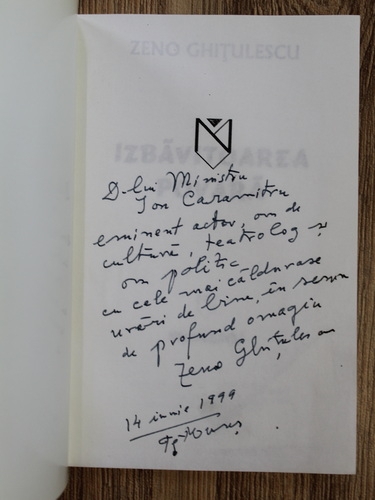 ZENO GHIŢULESCU
IZBĂVITOAREA
POVARĂ
D-lui Ministru
Ion Caramitru
eminent actor, om de
cultură, teatrolog și
om politic
cu cele mai călduroase
urări de bine, în semn
de profund omagiu
Zeno Ghițulescu
14 iunie 1999
Tg. Mureș